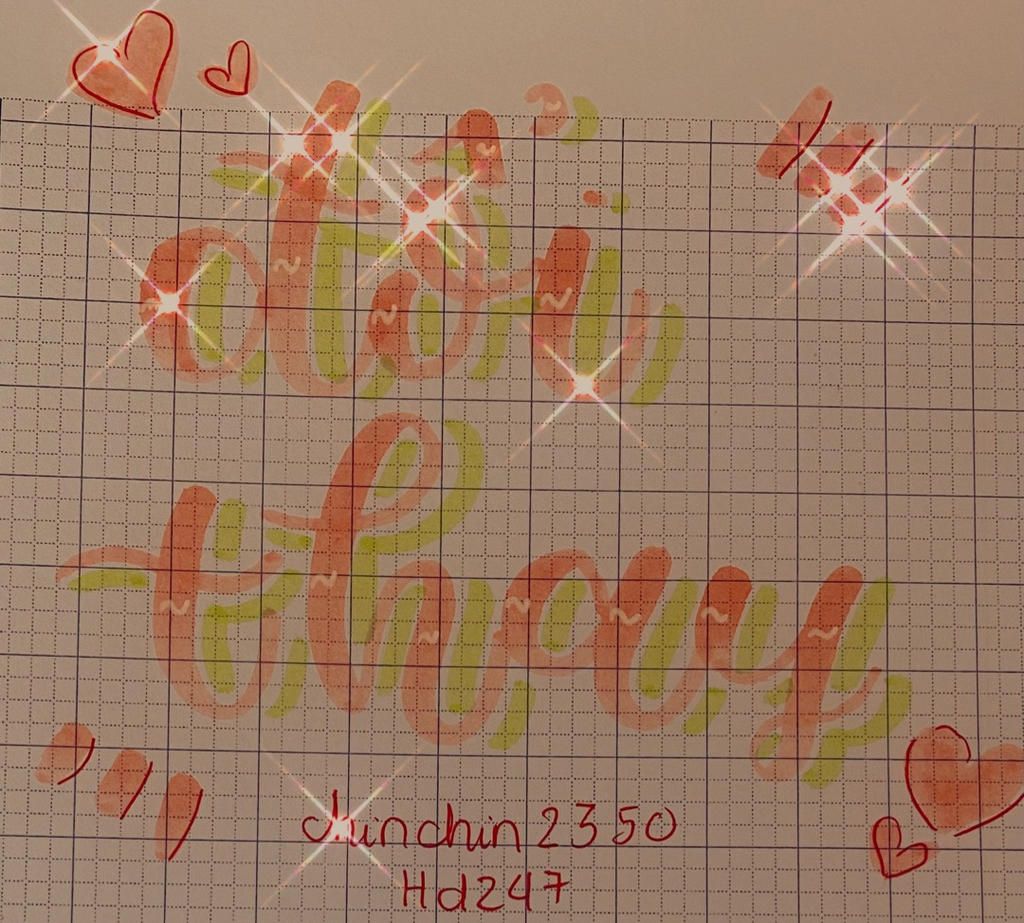 đổi
thay
chinchin 2350
Hd247